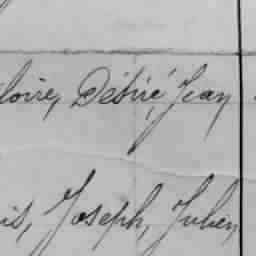 loire, Désiré, Jean
is, Joseph, Julien